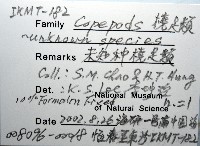 IKMT-182
Family Copepods 橈足類
~unknown species
Remarks 未知種橈足類
Coll.: S.M. Chao & H.T. Hung
Det.: K.S. Lee
National Museum
10% Formalin Fixed of Natural Science n.=1
Date 2002.8.26
008096-00918 IKMT-182